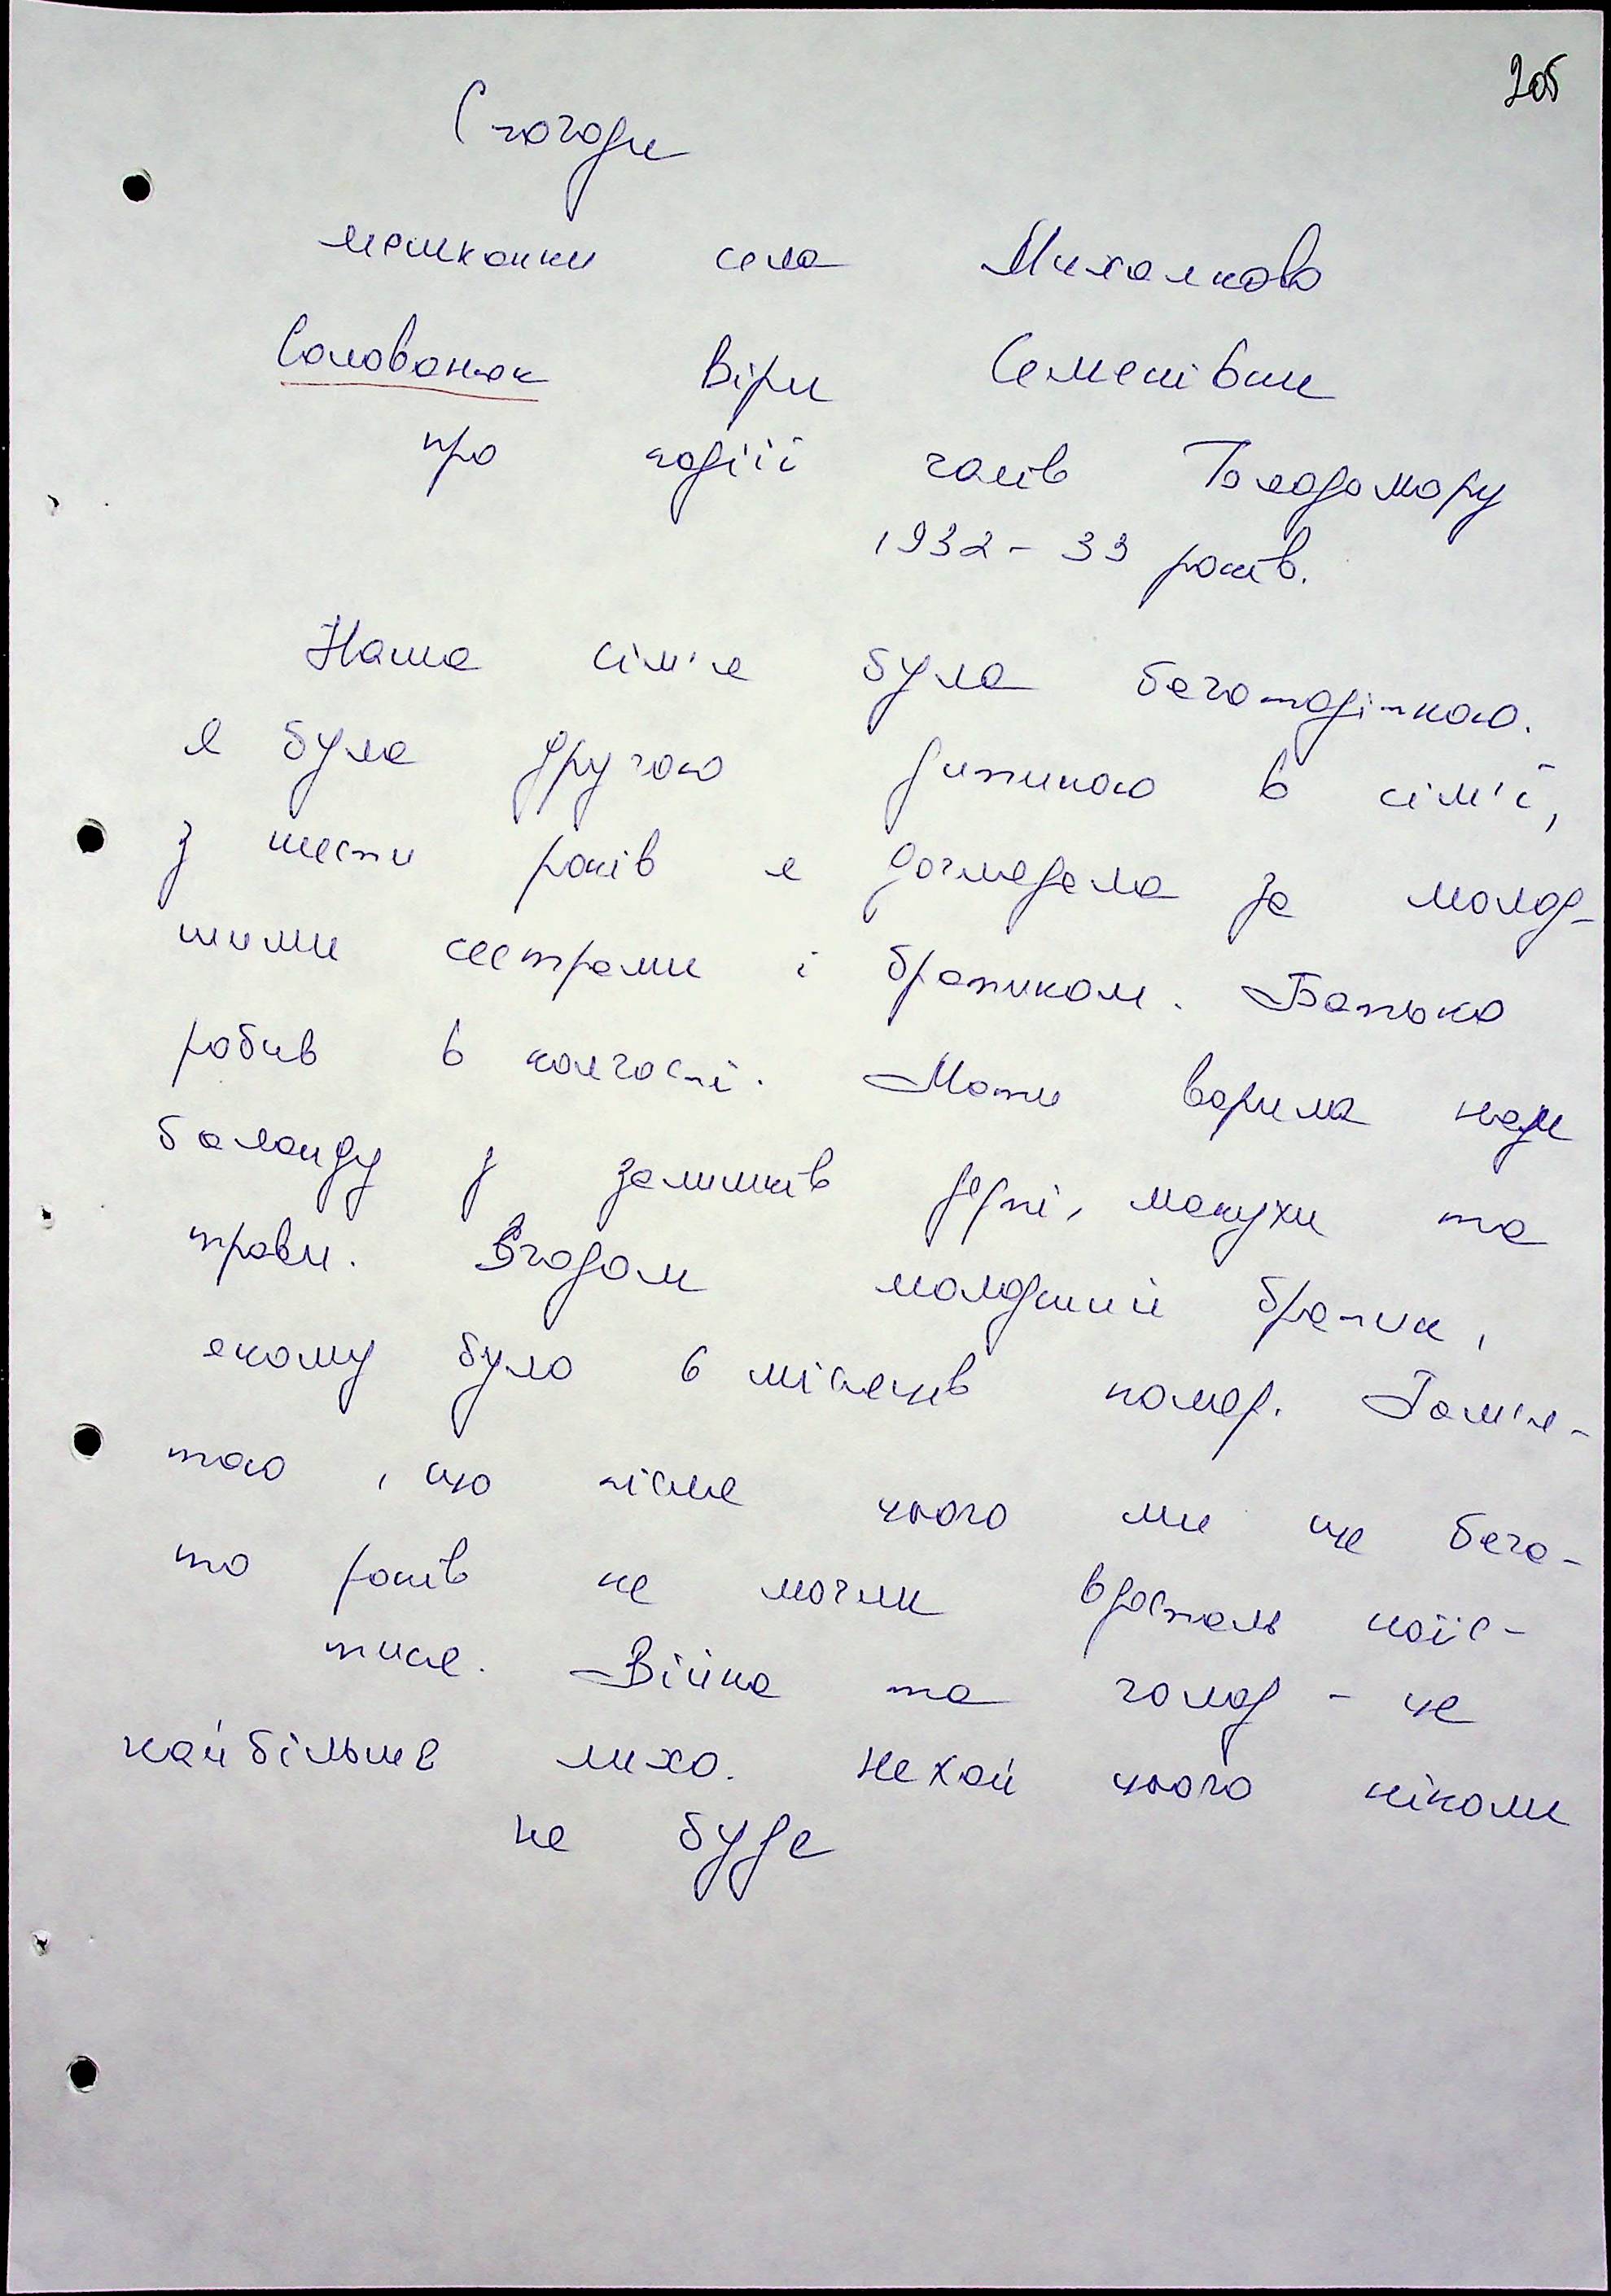 205
Спогади
мешканки села Михалково
Солованюк Віри Семенівни
про події часів Голодомору
1932-33 років.
Наша сім'я була багатодітною.
Я була другою дитиною в сім'ї,
з шести років я доглядала за молод-
шими сестрами і братиком. Батько
робив в колгоспі. Мати варила нам
баланду з залишків дерті, макухи та
трави. Згодом молодший братик,
якому було 6 місяців помер. Пам'я-
таю, що після цього ми ще бага-
то років не могли вдосталь наїс-
тися. Війна та голод - це
найбільше лихо. Нехай цього ніколи
не буде